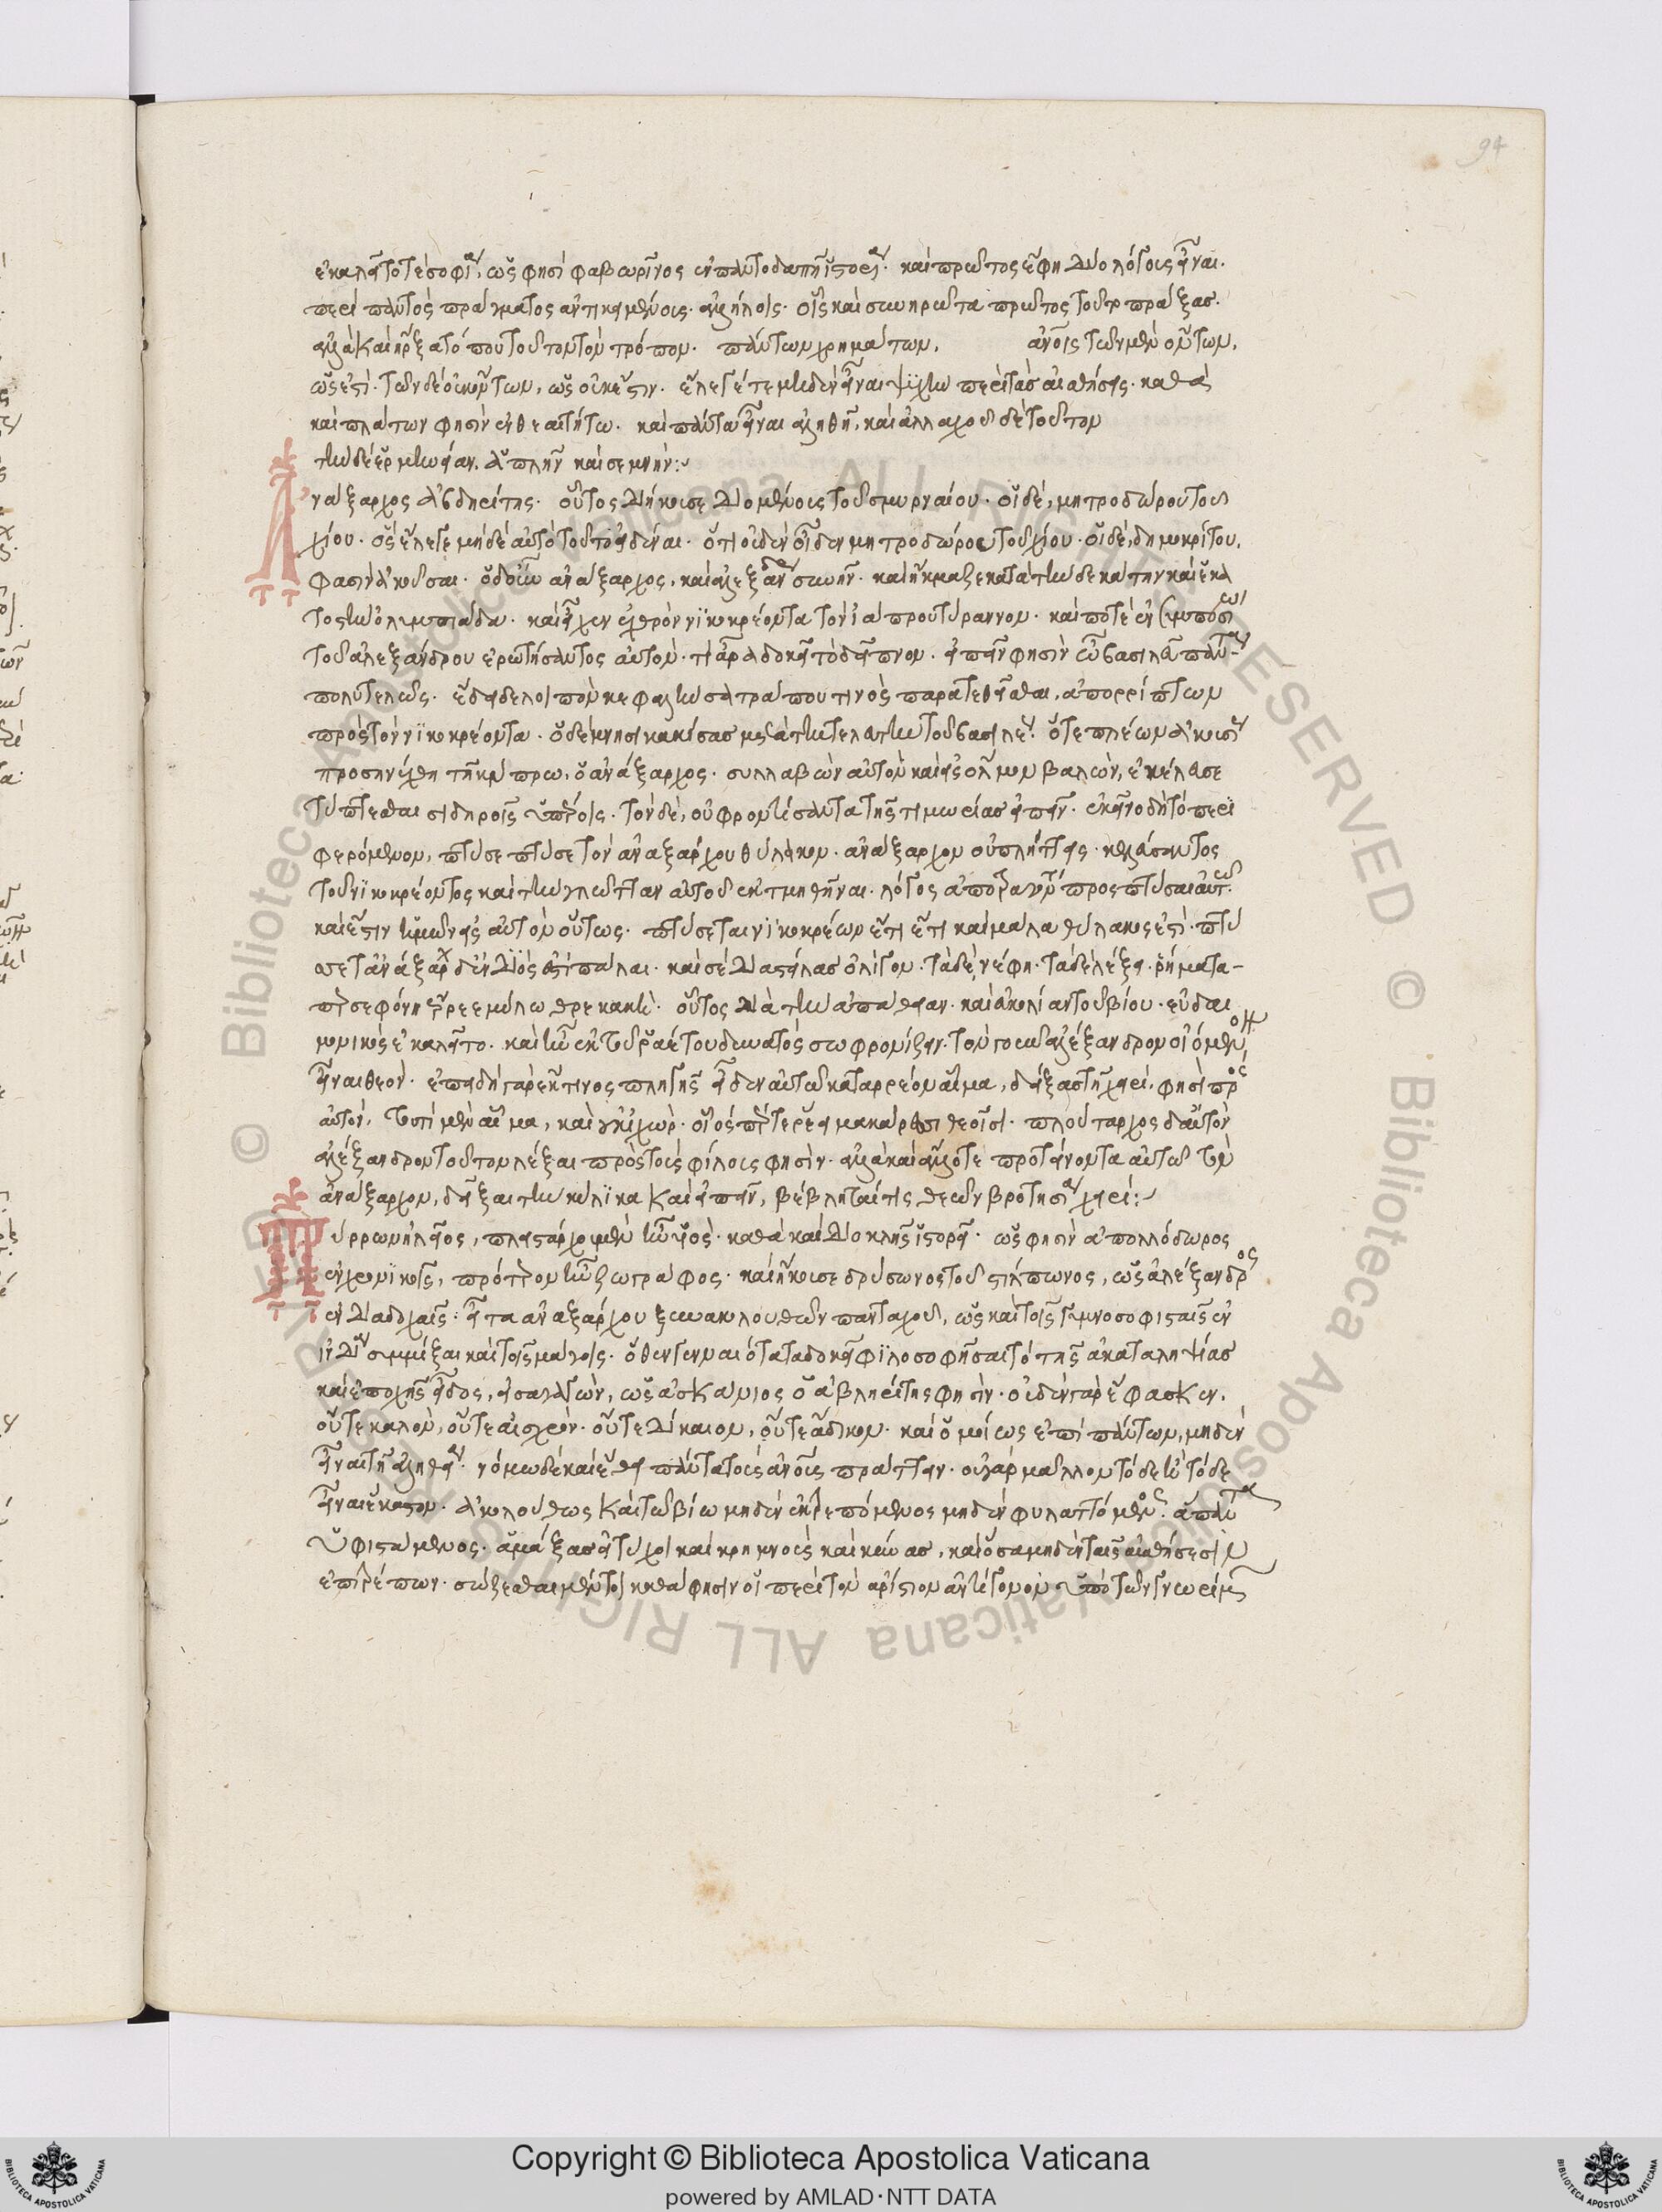 94
ἐκαλεῖτο τὲ σοφίαν, ὥς φησὶ φαβωρῖνος ἐν παντοδαπῆ ἱστορίαν. καὶ πρῶτος ἔφη δύο λόγοις εἶναι.
περὶ παντὸς πράγματος ἀντικειμένοις. ἀλλήλοις. οἷς καὶ συνηρώτα πρῶτος τοῦτο πράξας.
ἀλλὰ καὶ ἤρξατό που τοῦτον τὸν τρόπον. πάντων χρημάτων. ἀνοις τῶν μὲν ὄντων.
ὡς ἐστί. τῶν δὲ οὐκ ὄντων, ὡς οὐκ ἔστιν. ἔλεγέ τε μηδὲν εἶναι ψυχὴν περὶ τὰς αἰσθήσεις. καθὰ
καὶ πλάτων φησὶν ἐν θεαιτήτω. καὶ πάντα εἶναι ἀληθῆ, καὶ ἀλλαχοῦ δὲ τοῦτον
τὴν δὲ ἑρμηνείαν. ἁπλῆν καὶ σεμνήν:
Ἀνάξαρχος ἀβδηρίτης. οὗτος διήκουσε διομένοις τοῦ σμυρναίου. οἱ δὲ, μητροδώρου τοῦ
χίου. ὃς ἔλεγε μηδὲ αὐτὸ τοῦτο εἰδέναι. ὅτι οὐδὲν οἶδεν μητροδώρου τοῦ χίου. οἱ δὲ, δημοκρίτου,
φασὶν ἀκοῦσαι. ὁ δ' οὖν ἀνάξαρχος, καὶ ἀλεξάνδρω συνῆν. καὶ ἤκμαζε κατὰ τὴν δεκάτην καὶ ἑκα
τοστὴν ὀλυμπιάδα. καὶ εἶχεν ἐχθρὸν νικοκρέοντα τὸν κύπρου τύραννον. καὶ ποτὲ ἐν συμποσίω
τοῦ ἀλεξάνδρου ἐρωτήσαντος αὐτὸν. τί ἄρα δοκεῖ τὸ δεῖπνον. εἰπεῖν φησὶν ὦ βασιλεῦ πάντα
πολυτελῶς. ἔδει δὲ λοιπὸν κεφαλὴν σατράπου τινὸς παρατεθεῖσθαι, ἀπορρίπτων
πρὸς τὸν νικοκρέοντα. ὁ δὲ μνησικακήσας μετὰ τὴν τελευτὴν τοῦ βασιλέως ὅτε πλέων ἀκουσίως
προσηνέχθη τῆ κύπρω, ὁ ἀνάξαρχος. συλλαβὼν αὐτὸν καὶ εἰς ὅλμον βαλὼν, ἐκέλευσε
τύπτεσθαι σιδηροῖς ὑπέροις. τὸν δὲ, οὐ φροντίσαντα τῆς τιμωρίας εἰπεῖν. ἐκεῖνο δὴ τὸ περι
φερόμενον, πτύσε πτύσε τὸν ἀναξάρχου θύλακον. ἀνάξαρχον οὐ πλήττεις. κελεύσαντος
τοῦ νικοκρέοντος καὶ τὴν γλῶτταν αὐτοῦ ἐκτμηθῆναι. λόγος ἀποτραγόντα προσπτύσαι αὐτῶ.
καὶ ἔστιν ἡμῶν εἰς αὐτὸν οὕτως. πτύσεται νικοκρέων ἔτι ἔτι καὶ μάλα θύλακος ἐστί. πτυ
σετ' ἀνάξαρχ δ' ἐν διὸς ἐστὶ πάλαι. καὶ σὲ διαστείλασ ὀλίγον. τάδε, νέφη. τάδε λέξει. ῥήματα
περσεφόνη ἔρρε μύλω θρε κακὲ. οὗτος διὰ τὴν ἀπάθειαν. καὶ εὐκολίαν τοῦ βίου. εὐδαι
μονικὸς ἐκαλεῖτο. καὶ ἦν ἐκ τοῦ ῥάστου δυνατὸς σωφρονίζειν. τὸν γοῦν ἀλέξανδρον οἰόμενον
εἶναι θεὸν. ἐπειδὴ γὰρ ἔκ τινος πληγῆς εἶδεν αὐτῶ καταρρέον αἷμα, δείξας τῆ χειρί, φησὶ πρὸς
αὐτόν, τουτὶ μὲν αἷμα, καὶ οὐκ ἰχώρ. οἷός πέρ τε ῥέει μακάρεσσι θεοῖσι. πλούταρχος δ' αὐτὸν
ἀλέξανδρον τοῦτον λέξαι πρὸς τοὺς φίλοις φησὶν. ἀλλὰ καὶ ἄλλοτε προτείνοντα αὐτῶ τὸν
ἀνάξαρχον, δεῖξαι τὴν κύλικα καὶ εἰπεῖν, βεβλήσεταί τις θεῶν βροτησίαν χειρί:
Πύρρων ἠλεῖος, πλειστάρχου μὲν ἦν υἱὸς. καθὰ καὶ διοκλῆς ἱστορεῖ. ὥς φησὶν ἀπολλόδωρος
ἐν χρονικοῖς, πρότερον ἦν ζωγράφος. καὶ ἤκουσε δρύσωνος τοῦ στίλπωνος, ὡς ἀλέξανδρος
ἐν διαδοχαῖς. εἶτα ἀναξάρχου ξυνακολουθῶν πανταχοῦ, ὡς καὶ τοῖς γυμνοσοφισταῖς ἐν
ἰνδίαν συμμίξαι καὶ τοῖς μάγοις. ὅθεν γενναιότατα δοκεῖ φιλοσοφῆσαι τὸ τῆς ἀκαταληψίας
καὶ ἐποχῆς εἶδος, εἰσαγαγὼν, ὡς ἀσκάνιος ὁ ἀβληρίτης φησὶν. οὐδὲν γὰρ ἔφασκεν.
οὔτε καλὸν, οὔτε αἰσχρὸν. οὔτε δίκαιον, οὔτε ἄδικον. καὶ ὁμοίως ἐπὶ πάντων, μηδὲν
εἶναι τῆ ἀληθείαν. νόμω δὲ καὶ ἔθει πάντα τοὺς ἀνοις πράττειν. οὐ γὰρ μᾶλλον τόδε ἢ τόδε
εἶναι ἕκαστον. ἀκόλουθως καὶ τῶ βίω μηδὲν ἐκτρεπόμενος μηδὲν φυλαττόμενος. ἅπαντα
ὑφιστάμενος. ἁμάξας εἰ τύχοι καὶ κρημνοὺς καὶ κύνας, καὶ ὅσα μηδὲν ταῖς αἰσθήσεσιν
ἐπιτρέπων. σώζεσθαι μέντοι καθά φησιν οἱ περὶ τὸν αρίστιον ἀντίγονον ὑπὸ τῶν γνωρίμων